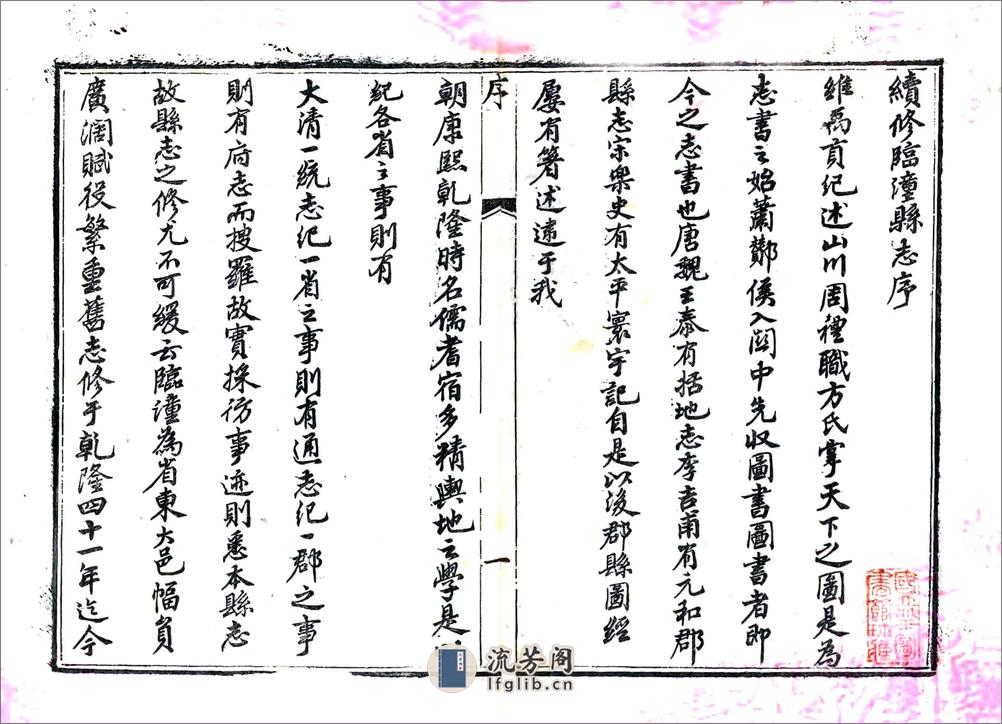 續修臨潼縣志序
維禹貢紀述山川周禮職方氏掌天下之圖是為
志書之始蕭酇侯入關中先收圖書圖書者即
今之志書也唐魏王泰有括地志李吉甫有元和郡
縣志宋樂史有太平寰宇記自是以後郡縣圖經
屢有箸述逮于我
序
一
朝康熙乾隆時名儒耆宿多精輿地之學是
紀各省之事則有
大清一統志紀一省之事則有通志紀一郡之事
則有府志而搜羅故實採訪事迹則悉本縣志
故縣志之修尤不可緩云臨潼為省東大邑幅員
廣濶賦役繁重舊志修于乾隆四十一年迄今
流芳阁
lfglib.cn